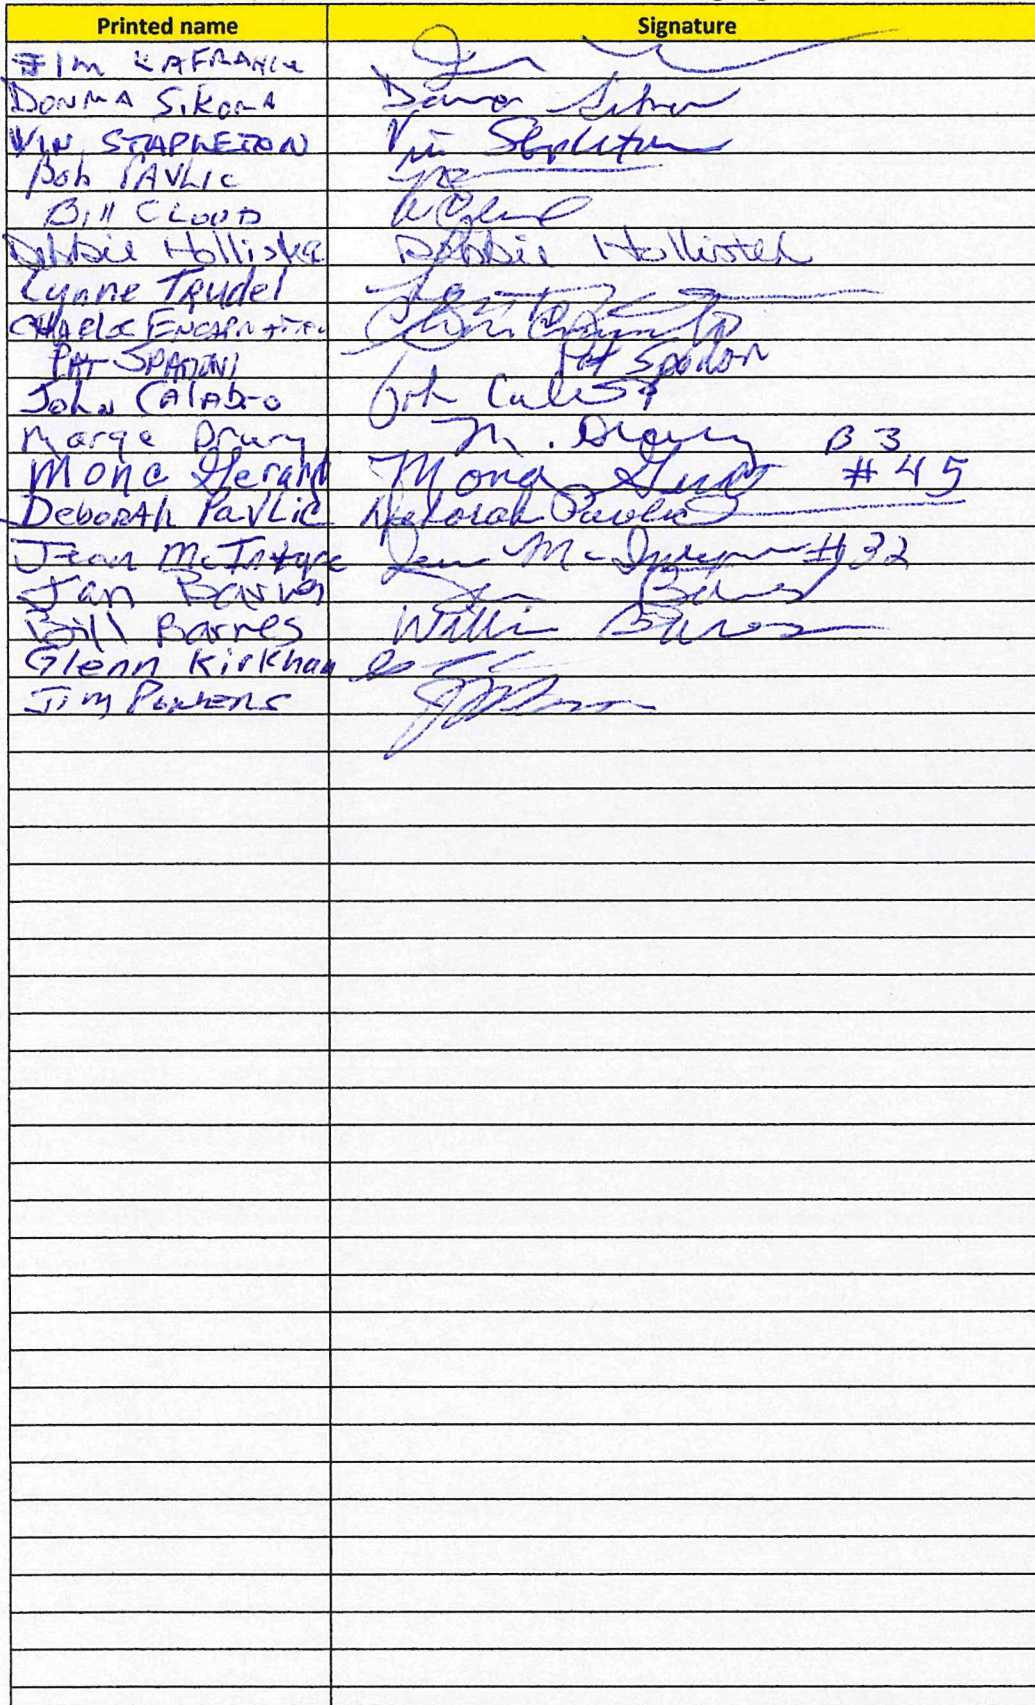 Printed name Signature
Jim LAFRANCE
DONNA SIKORA Donna
WIN STAPLETON Win Stapleton
Bob PAVLIC
Bill CLOUD
Debbie Hollister Debbie Hollister
Lynne Trudel
PAT SPADONI Pat Spadon
John CALABRO John
Marge Drury M. Drury B 3
Mona Gerard Mona # 45
DeboRAh PavLic Deborah Pavlic
Jean McIntyre Jean McIntyre #32
Jan Barnes Jan
Bill Barnes
Glenn Kirkham
Jim Powers